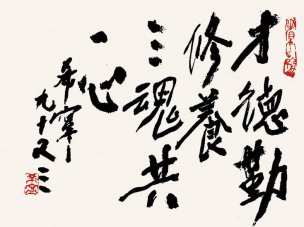 才德勤
修養
三魂共
一心
希寧
九十又三